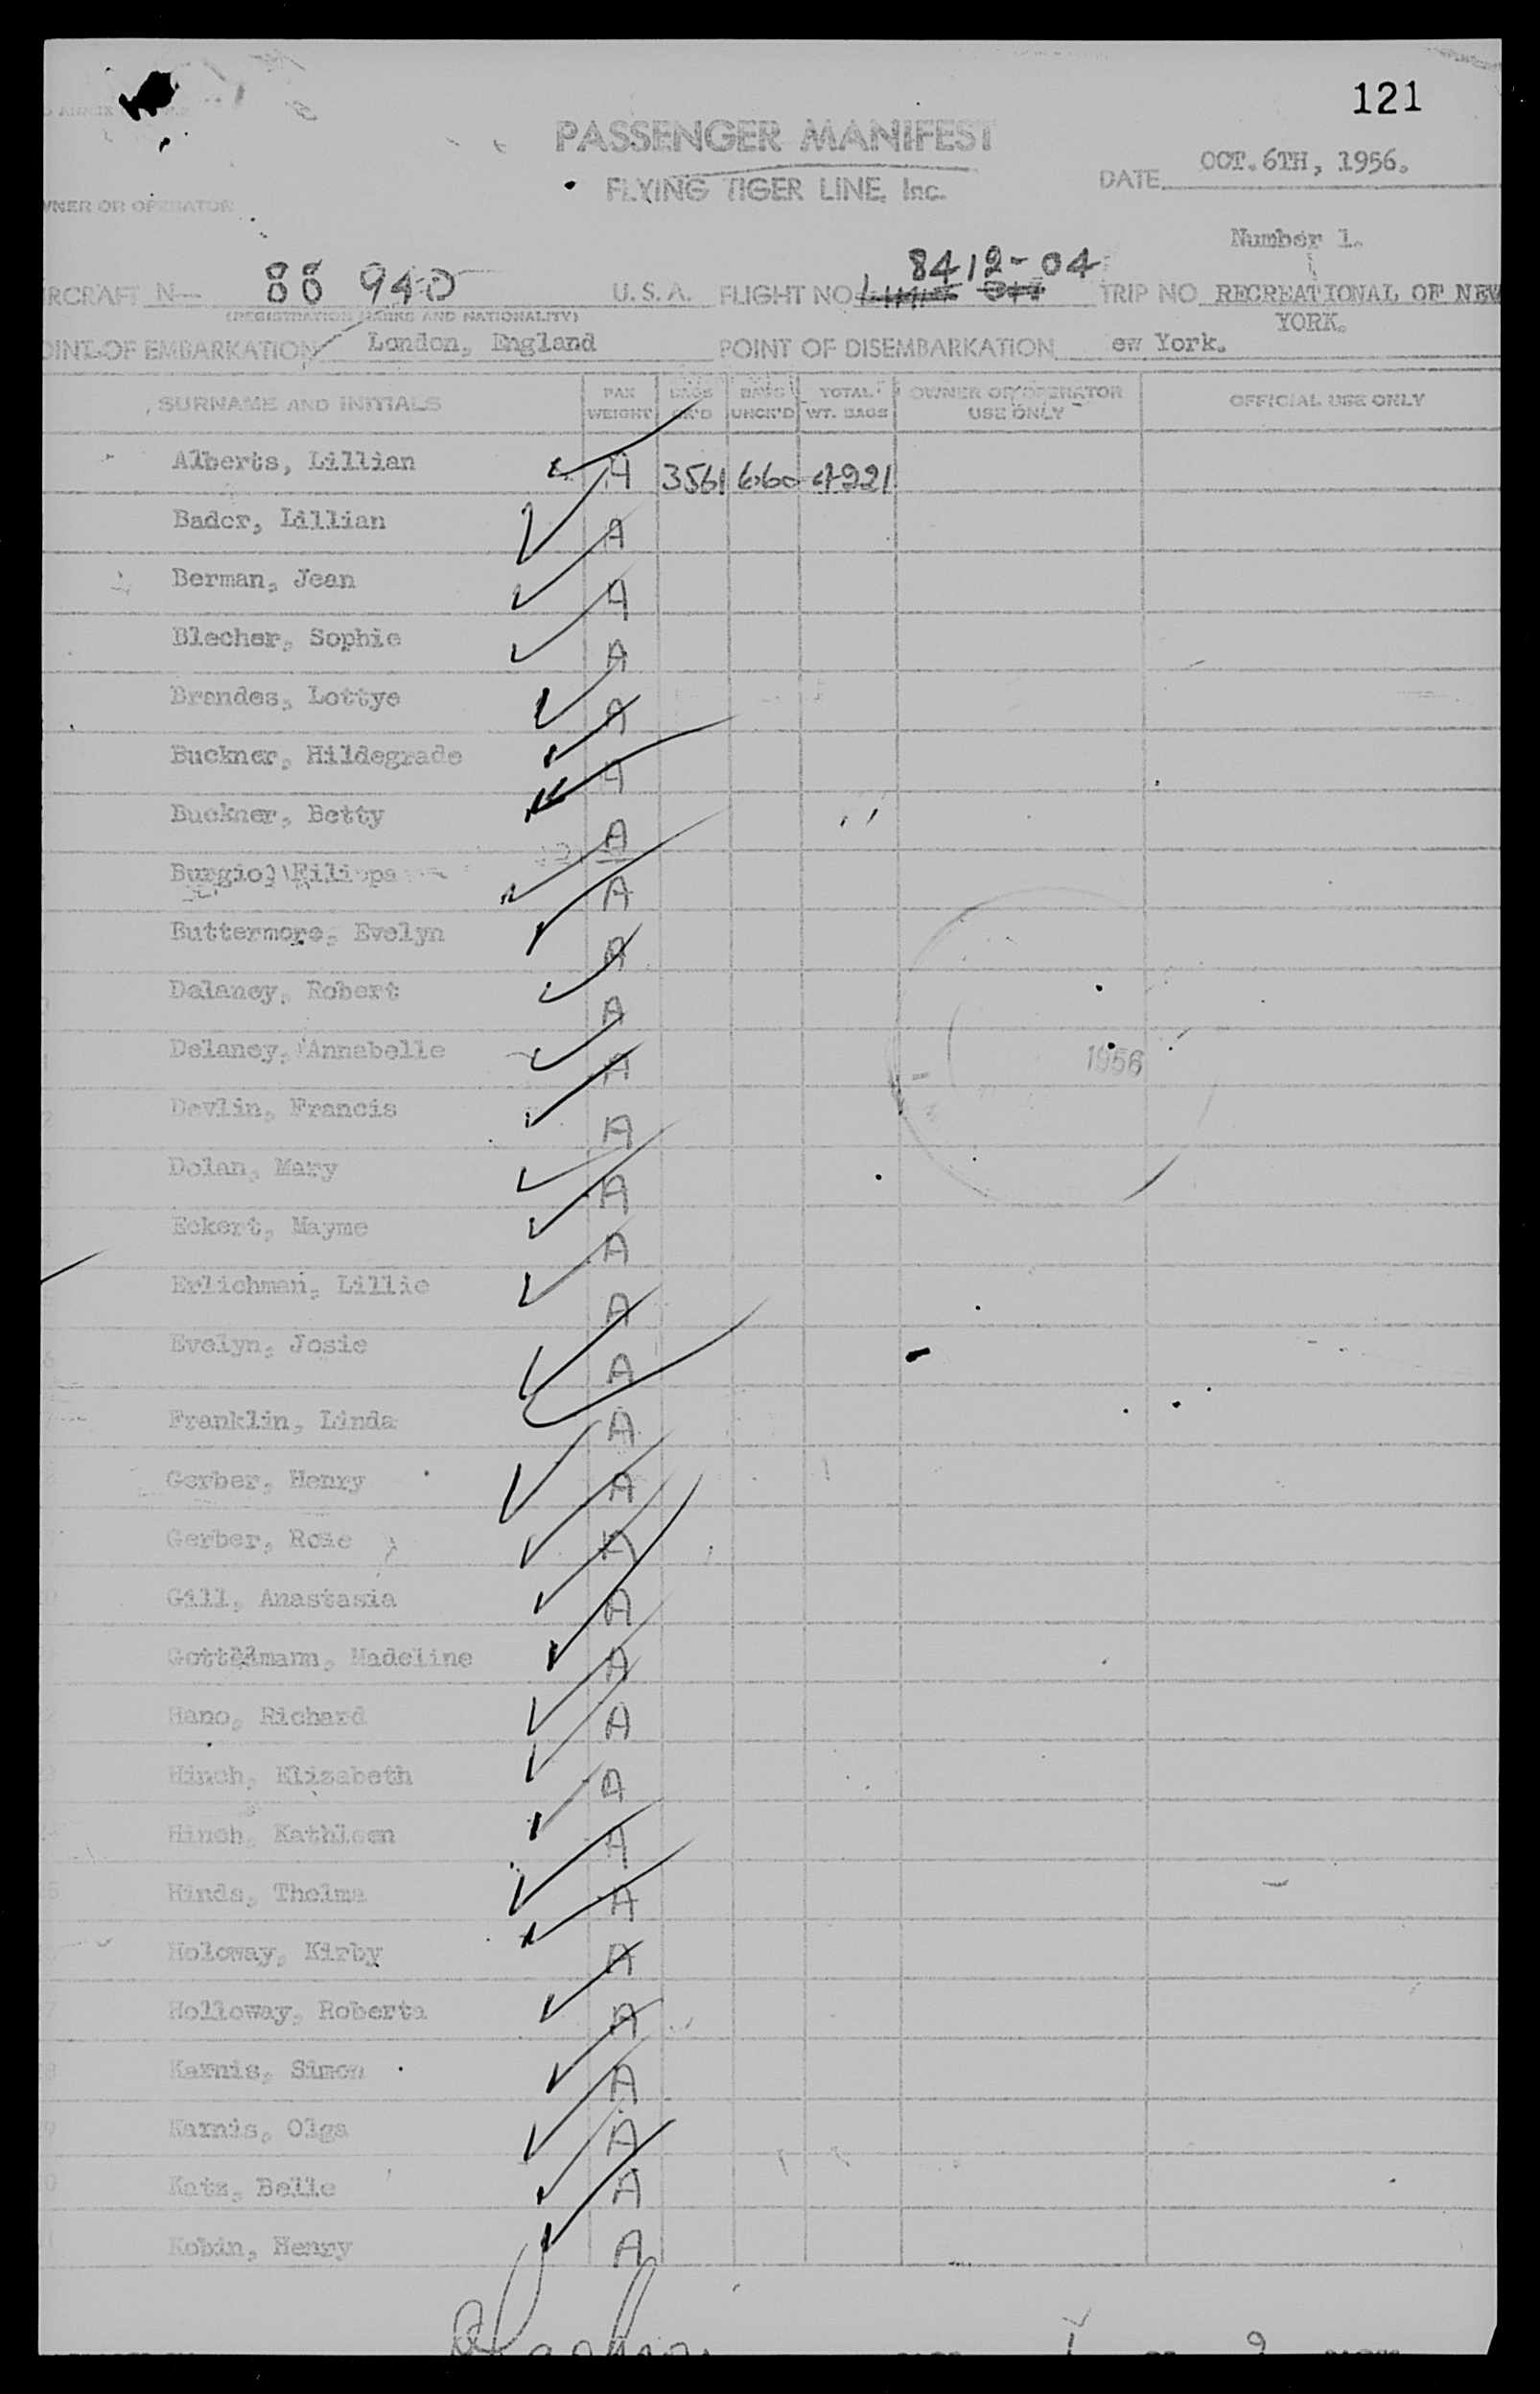 121
PASSENGER MANIFEST
FLYING TIGER LINE, Inc.
DATE OCT. 6TH, 1956.
WNER OR OPERATOR
Number 1.
8412-04
RCRAFT N- 88 940 U.S.A. FLIGHT NO TRIP NO RECREATIONAL OF NEW
(REGISTRATION MARKS AND NATIONALITY) YORK.
OINT OF EMBARKATION London, England POINT OF DISEMBARKATION ew York.
SURNAME AND INITIALS PAX WEIGHT BAGS CK'D BAGS UNCK'D TOTAL WT. BAGS OWNER OR OPERATOR USE ONLY OFFICIAL USE ONLY
Alberts, Lillian A 3561 660 4221
Bader, Lillian A
Berman, Jean A
Blecher, Sophie A
Brandes, Lottye A
Buckner, Hildegrade A
Buckner, Betty A
Burgio, Filippa A
Buttermore, Evelyn A
Delaney, Robert A
Delaney, Annabelle A
1956
Devlin, Francis A
Dolan, Mary A
Eckert, Mayme A
Erlichman, Lillie A
Evelyn, Josie A
Franklin, Linda A
Gerber, Henry A
Gerber, Rose A
Gill, Anastasia A
Madeline A
Hano, Richard A
Hinch, Elizabeth A
Hinch, Kathleen A
Hinds, Thelma A
Holoway, Kirby A
Holloway, Roberta A
Karnis, Simon A
Karnis, Olga A
Katz, Belle A
Kobin, Henry A
1 2